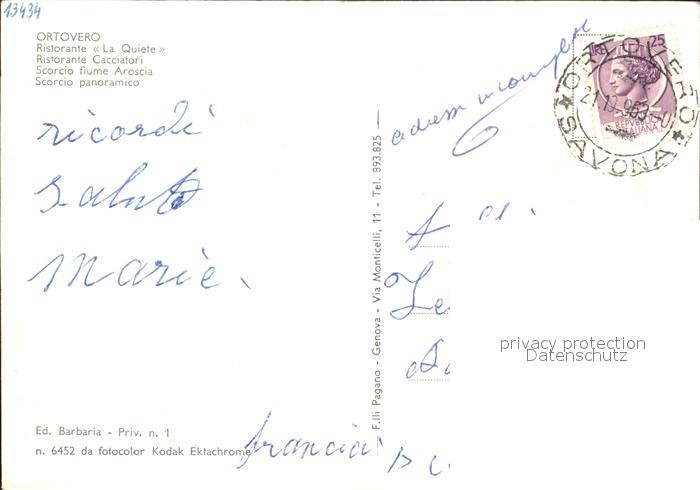 13434
ORTOVERO
Ristorante « La Quiete »
Ristorante Cacciatori
Scorcio fiume Aroscia
Scorcio panoramico
ricordi
Saluti
Marie.
Ed. Barbaria - Priv. n. 1
n. 6452 da fotocolor Kodak Ektachrome
francia
F.lli Pagano - Genova - Via Monticelli, 11 - Tel. 893.825 —
LIRE 25
REPVBBLICA
ITALIANA
ORTOVERO
SAVONA
privacy protection
Datenschutz